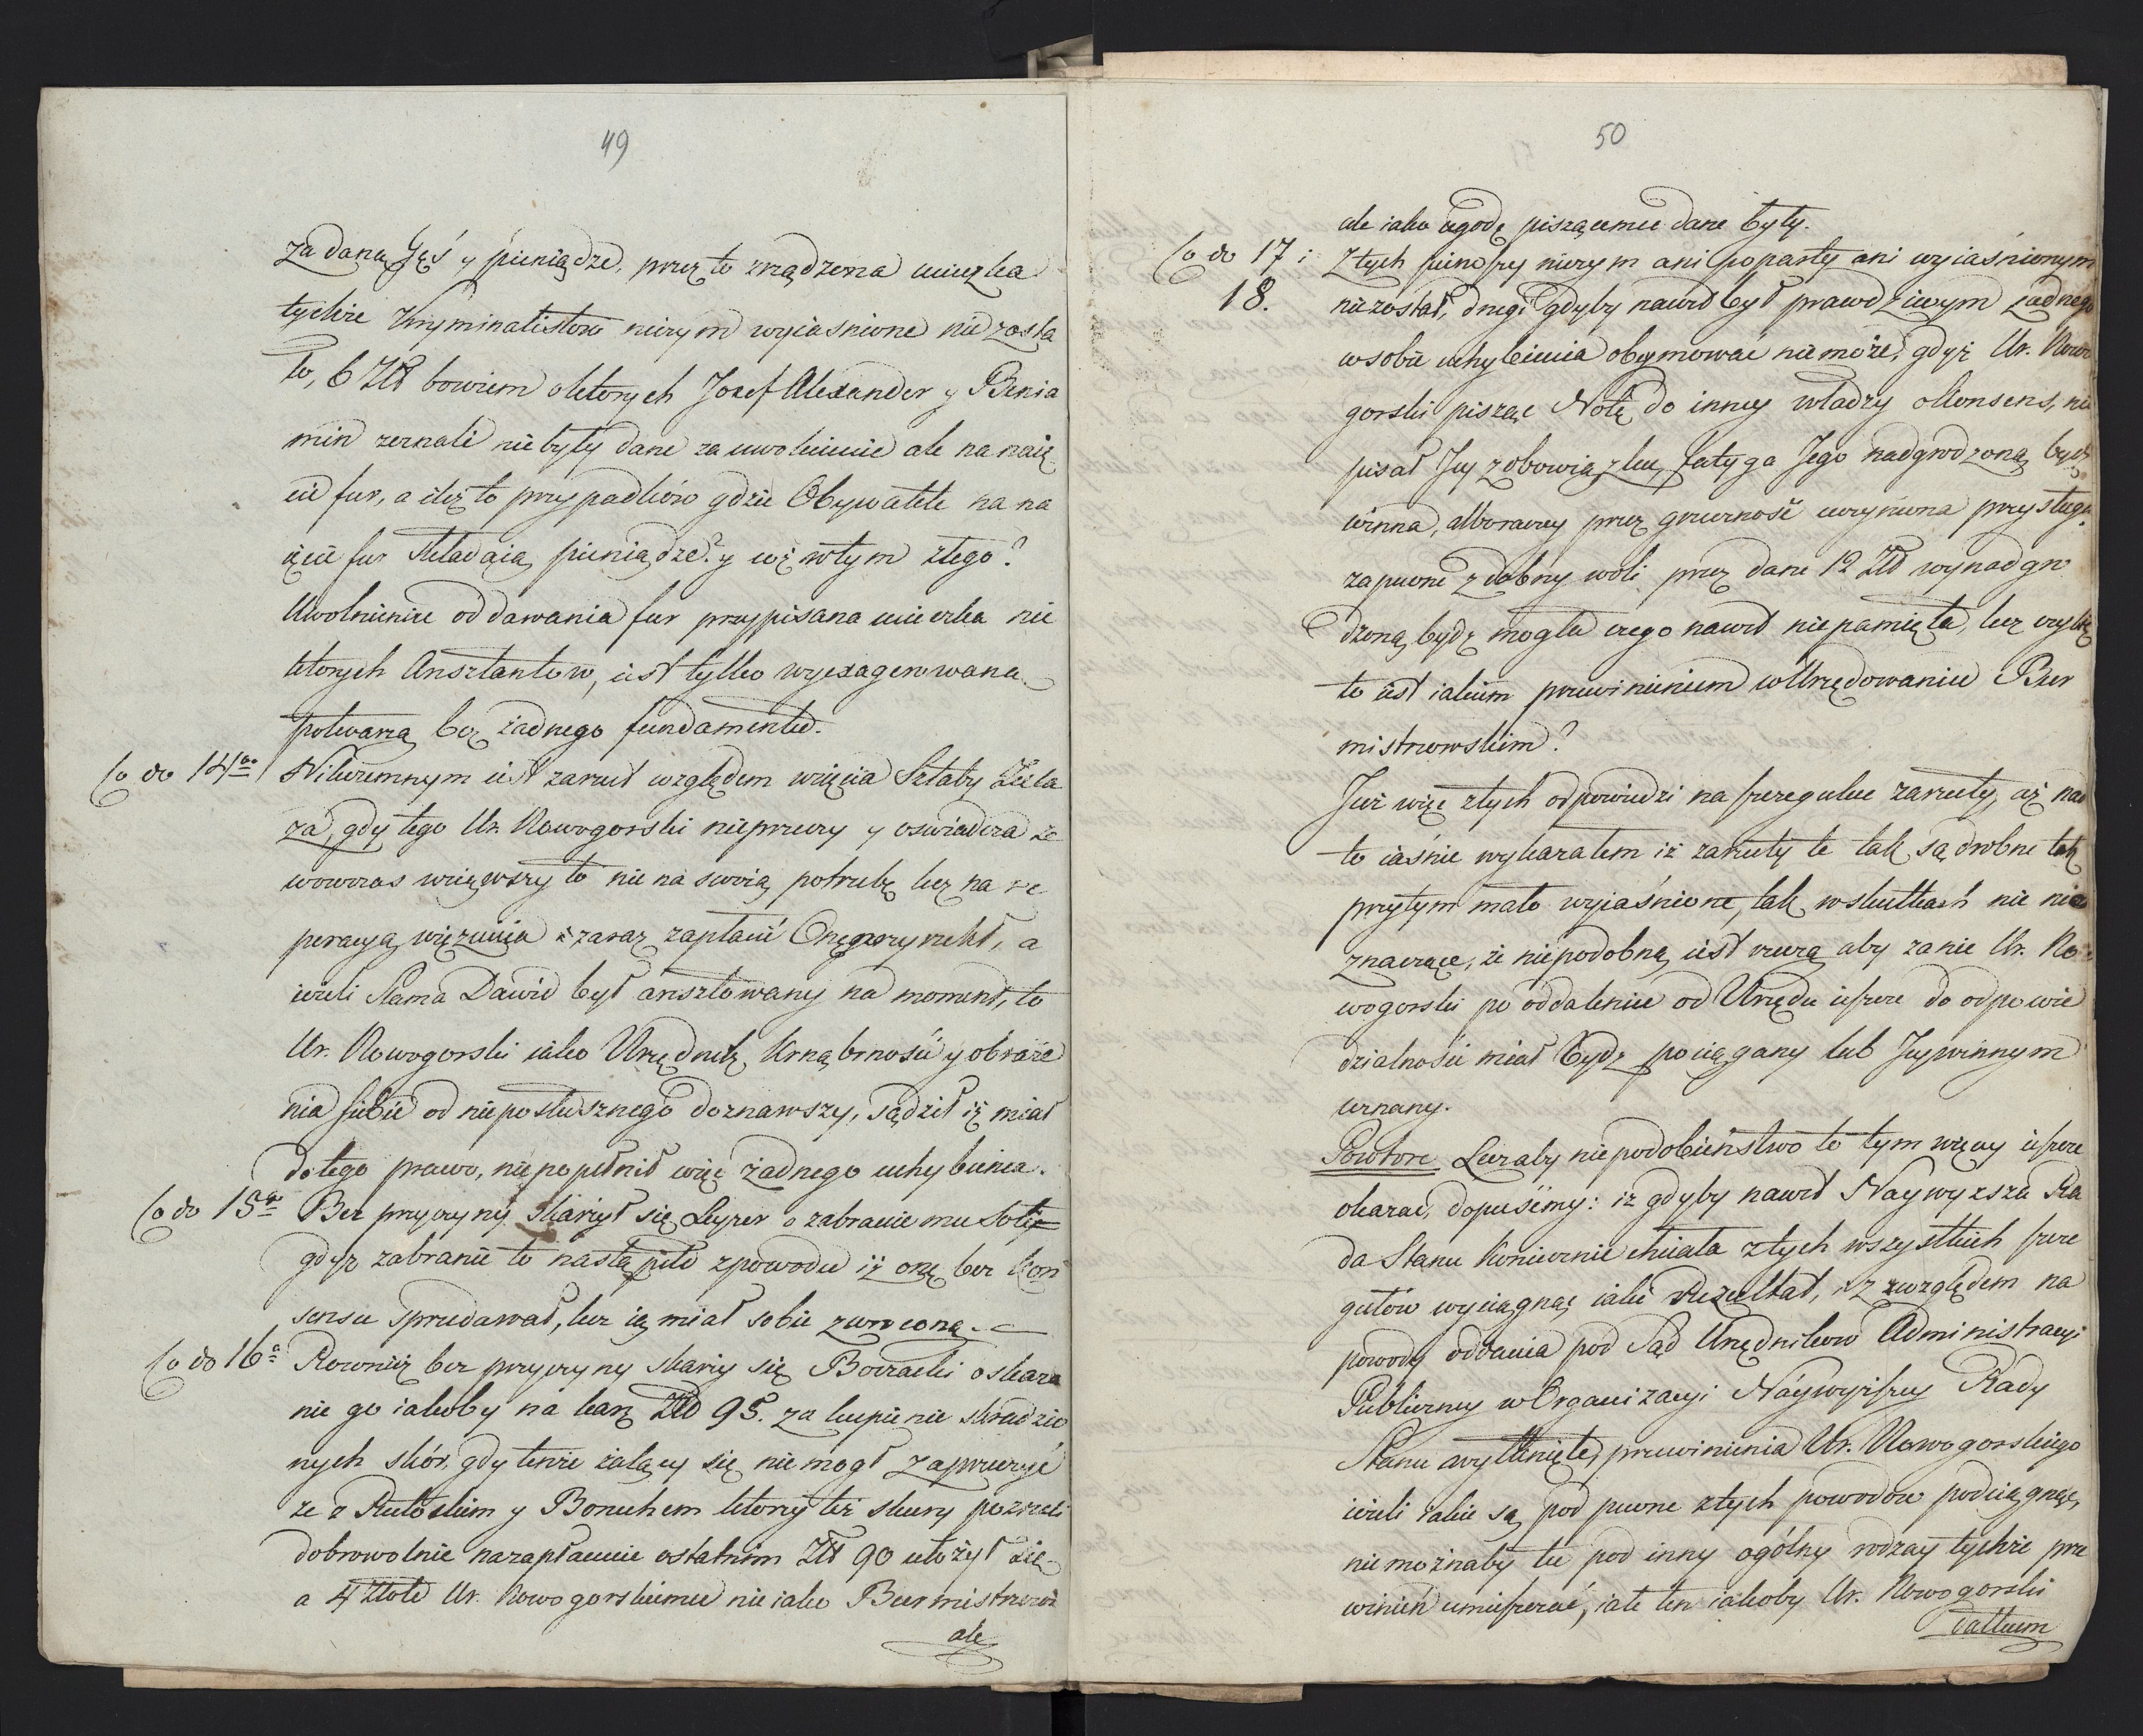 49
za daną Gęś y pieniądze, przez to zrządzona ucieczka
tychże Kryminalistow niczym wyiasnione nie zosta
ło, 6 Złt bowiem o ktorych Jozef Alexander y Benia
min zeznali nie były dane za uwolnienie ale na naię
cie fur, a ileż to przypadków gdzie Obywatele na na
ięcie fur składaią pieniądze? y coż w tym złego?
Uwolnienie od dawania fur przypisana ucieczka nie
ktorych Aresztantow, iest tylko wyexagerowaną
potwarzą bez żadnego fundamentu.
Co do 14to Nikczemnym iest zarzut względem wzięcia Sztaby Żela
za, gdy tego Ur. Nowogorski nieprzeczy y oswiadcza że
wowczas wziąwszy to nie na swoią potrzebę lecz na re
peracyą więzienia i zaraz zapłacić Onę przyrzekł, a
ieżeli Rama Dawid był aresztowany na moment, to
Ur. Nowogorski iako Urzędnik krnąbrności y obraże
nia siebie od nieposłusznego doznawszy, sądził iż miał
do tego prawo, nie popełnił więc żadnego uchybienia.
Co do 15go Bez przyczyny skarżył się Leyzer o zabranie mu Soli
gdyż zabranie to nastąpiło z powodu iż onę bez kon
sensu sprzedawał, lecz ią miał sobie zwroconą.
Co do 16o Rownież bez przyczyny skarży się Borzacki o skaza
nie go iakoby na karę Złt 95. za kupienie skradzio
nych skór, gdy tenże żalący się nie mogł zaprzeczyć
że z Rutoskim y Bonuchem ktorzy też skury pozarali
dobrowolnie na zapłacenie ostatnim Złt 90 ułożył się
a 4 złote Ur. Nowogorskiemu nie iako Burmistrzowi
ale
50
ale iako ugodę piszącemu dane były.
Co do 17 i Z tych pierwszy niczym ani poparty ani wyiaśnionym
18. niezostał, drugi gdyby nawet był prawdziwym żadnego
w sobie uchybienia obeymować nie może, gdyż Ur. Nowo
gorski pisząc Notę do inney władzy o Konsens, nie
pisał Jey z obowiązku, fatyga Jego nadgrodzoną bydź
winna, albo raczey przez grzeczność uczyniona przysługa
zapewne z dobrey woli przez dane 12 Złt wynadgro
dzoną bydź mogła czego nawet nie pamięta, lecz czyliż
to iest iakim przewinieniem w Urzędowaniu Bur
mistrzowskim?
Już więc z tych odpowiedzi na szczegulne zarzuty, aż nad
to iaśnie wykazałem iż zarzuty te tak są drobne tak
przytym mało wyiaśnione, tak w skutkach nic nie
znaczące, że niepodobną iest rzeczą aby za nie Ur. No
wogorski po oddaleniu od Urzędu ieszcze do odpowie
dzialności miał bydź pociągany lub Jey winnym
uznany.
Powtore Lecz aby niepodobieństwo to tym więcey ieszcze
okazać, dopuśćmy: iż gdyby nawet Naywyzsza Ra
da Stanu koniecznie chciała z tych wszystkich szcze
gułów wyciągnąć iaki Rezultat, i z względem na
powody oddania pod Sąd Urzędnikow Administracyi
Publiczney w Organizacyi Naywyższey Rady
Stanu wytknięte, przewinienia Ur. Nowogorskiego
ieżeli iakie są pod pewne z tych powodow podciągnąć,
nie możnaby ie pod inny ogólny rodzay tychże prze
winień umieszczać, iak ten iakoby Ur. Nowogorski
datkiem